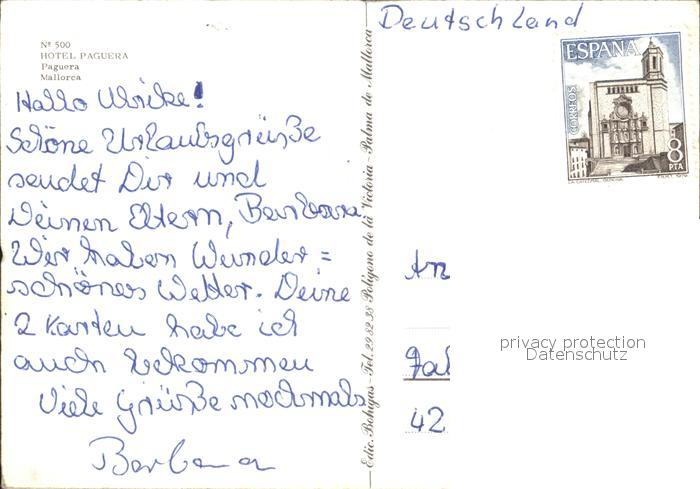 Nº 500
HOTEL PAGUERA
Paguera
Mallorca
Hallo Ulrike!
Schöne Urlaubsgrüße
sendet Dir und
Deinen Eltern, Barbara.
Wir haben Wunder=
schönes Wetter. Deine
2 Karten habe ich
auch bekommen
Viele Grüße nochmals
Barbara
Edic. Bohigas - Tel. 29 82 38 Polígono de la Victoria - Palma de Mallorca
Deutschland
ESPAÑA
CORREOS
8
PTA
An
42
privacy protection
Datenschutz